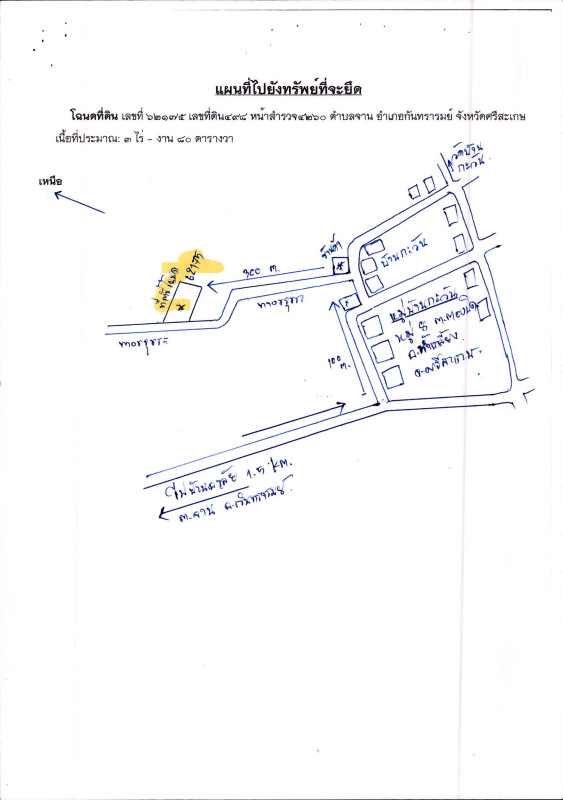 แผนที่ไปยังทรัพย์ที่จะยึด
โฉนดที่ดิน เลขที่ ๖๒๑๗๕ เลขที่ดิน๔๙๘ หน้าสำรวจ๔๒๖๐ ตำบลจาน อำเภอกันทรารมย์ จังหวัดศรีสะเกษ
เนื้อที่ประมาณ: ๓ ไร่ - งาน ๘๐ ตารางวา
เหนือ
วัดบ้าน
กะวัน
ร้านค้า
300 ต.
62175
บ้านกะวัน
ทางสาธารณะ
ทางสาธารณะ
100
ม.
หมู่บ้านกะวัน
หมู่ 8
ไปบ้าน 1.5 km.
ต.จาน อ.กันทรารมย์